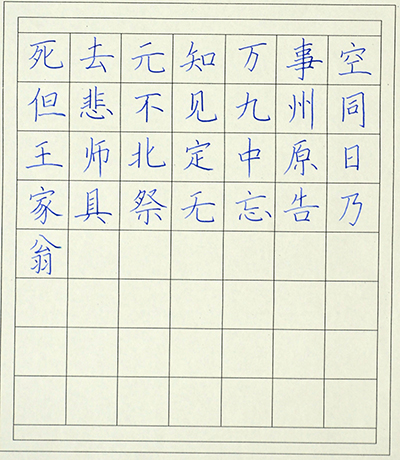 死去元知万事空
但悲不见九州同
王师北定中原日
家具祭无忘告乃
翁